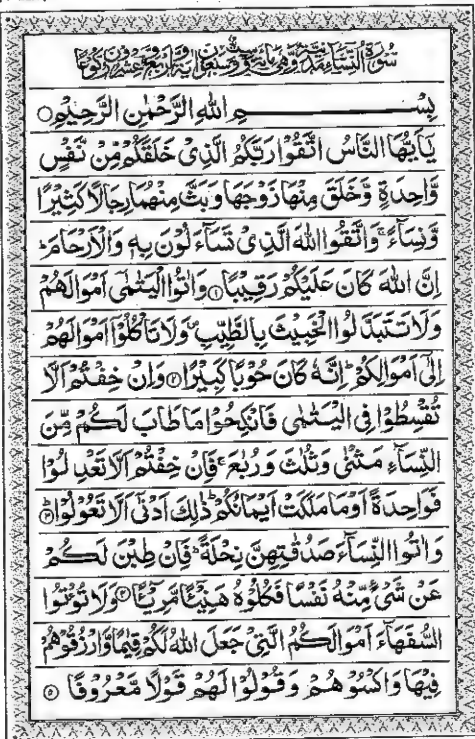 سُوْرَةُ النِّسَآءِ مَدَنِيَّةٌ وَّهِيَ مِائَةٌ وَّسِتٌّ وَّسَبْعُوْنَ اٰيَةً وَّاَرْبَعٌ وَّعِشْرُوْنَ رُكُوْعًا
بِسْمِ اللهِ الرَّحْمٰنِ الرَّحِيْمِ ○
يٰۤاَيُّهَا النَّاسُ اتَّقُوْا رَبَّكُمُ الَّذِيْ خَلَقَكُمْ مِّنْ نَّفْسٍ
وَّاحِدَةٍ وَّخَلَقَ مِنْهَا زَوْجَهَا وَبَثَّ مِنْهُمَا رِجَالًا كَثِيْرًا
وَّنِسَآءً ۚ وَاتَّقُوا اللهَ الَّذِيْ تَسَآءَلُوْنَ بِهٖ وَالْاَرْحَامَ ؕ
اِنَّ اللهَ كَانَ عَلَيْكُمْ رَقِيْبًا ۝۱ وَاٰتُوا الْيَتٰمٰۤى اَمْوَالَهُمْ
وَلَا تَتَبَدَّلُوا الْخَبِيْثَ بِالطَّيِّبِ ۪ وَلَا تَاْكُلُوْۤا اَمْوَالَهُمْ
اِلٰۤى اَمْوَالِكُمْ ؕ اِنَّهٗ كَانَ حُوْبًا كَبِيْرًا ۝۲ وَاِنْ خِفْتُمْ اَلَّا
تُقْسِطُوْا فِي الْيَتٰمٰى فَانْكِحُوْا مَا طَابَ لَكُمْ مِّنَ
النِّسَآءِ مَثْنٰى وَثُلٰثَ وَرُبٰعَ ۚ فَاِنْ خِفْتُمْ اَلَّا تَعْدِلُوْا
فَوَاحِدَةً اَوْ مَا مَلَكَتْ اَيْمَانُكُمْ ؕ ذٰلِكَ اَدْنٰۤى اَلَّا تَعُوْلُوْا ۝۳
وَاٰتُوا النِّسَآءَ صَدُقٰتِهِنَّ نِحْلَةً ؕ فَاِنْ طِبْنَ لَكُمْ
عَنْ شَيْءٍ مِّنْهُ نَفْسًا فَكُلُوْهُ هَنِيْٓئًا مَّرِيْٓئًا ۝۴ وَلَا تُؤْتُوا
السُّفَهَآءَ اَمْوَالَكُمُ الَّتِيْ جَعَلَ اللهُ لَكُمْ قِيٰمًا وَّارْزُقُوْهُمْ
فِيْهَا وَاكْسُوْهُمْ وَقُوْلُوْا لَهُمْ قَوْلًا مَّعْرُوْفًا ۝۵